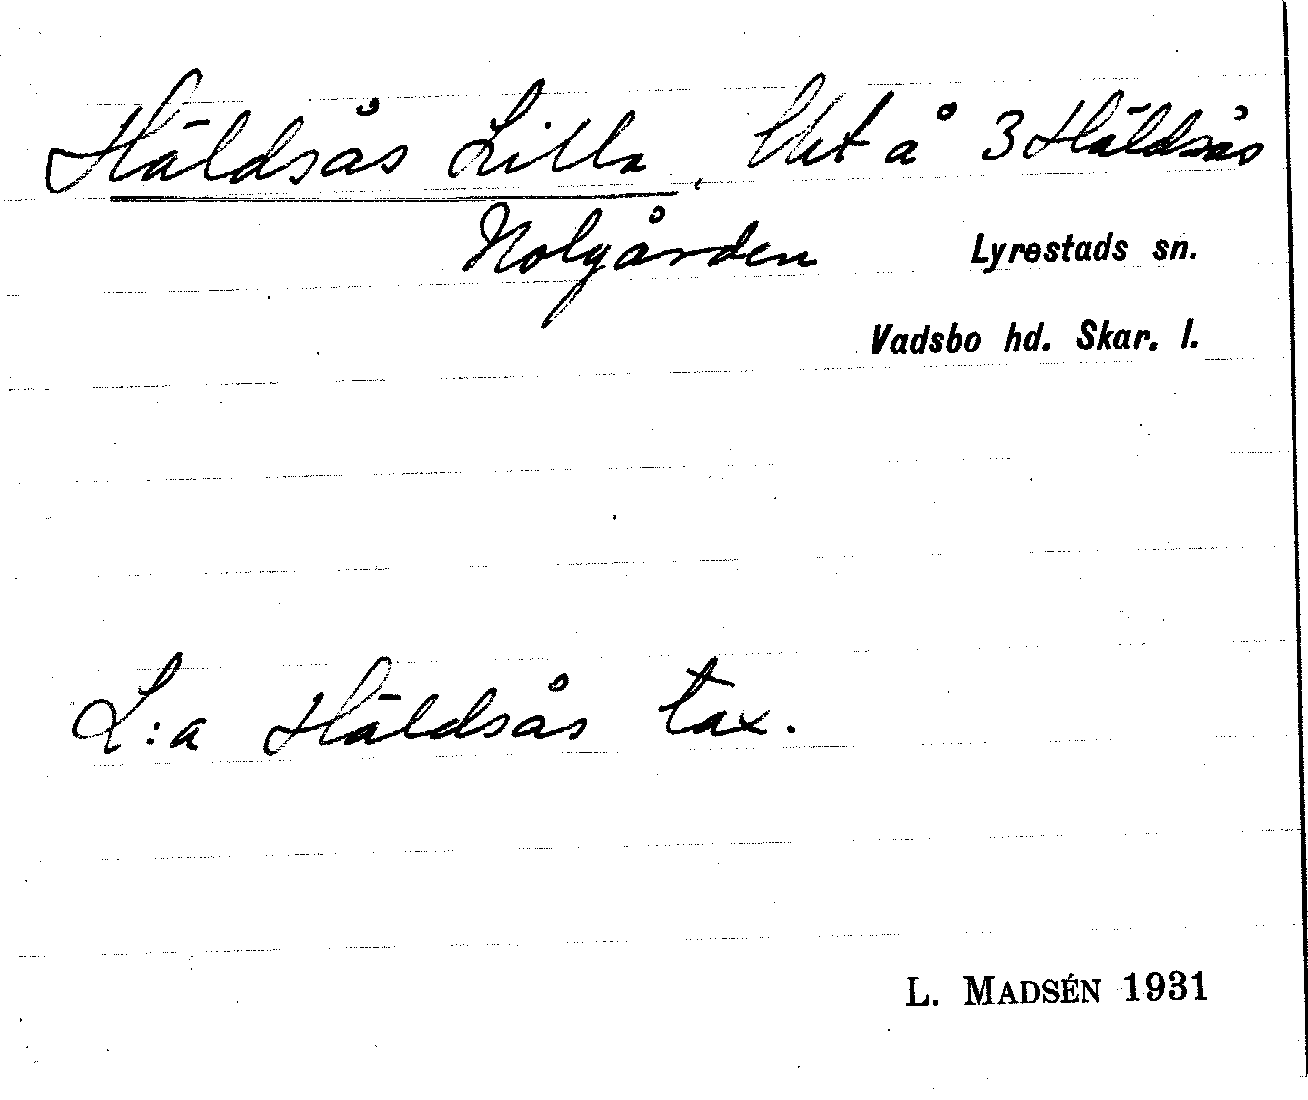 Häldsås Lilla, lht å 3 Häldsås
Nolgården Lyrestads sn.
Vadsbo hd. Skar. l.
L:a Häldsås tax.
L. MADSÉN 1931